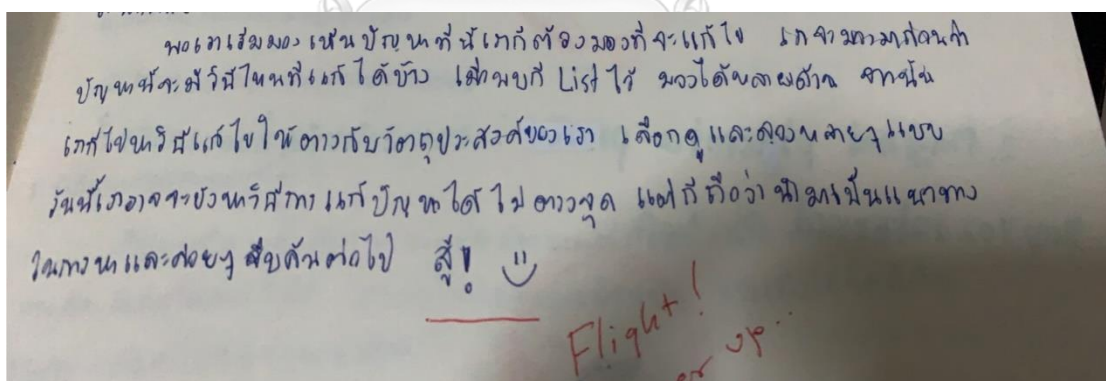 พอเราเริ่มมองเห็นปัญหาที่นี้เราก็ต้องมองที่จะแก้ไข เราจะมองมาก่อนว่า
ปัญหานี้จะมีวิธีไหนที่แก้ได้บ้าง เมื่อพบก็ List ไว้ มองได้หลายด้าน จากนั้น
เราก็ไปหาวิธีแก้ไขให้ตรงกับวัตถุประสงค์ของเรา เลือกดูและลองหลายๆแบบ
วันนี้เราอาจจะยังหาวิธีการแก้ปัญหาได้ไม่ตรงจุด แต่ก็ถือว่านำมาเป็นแนวทาง
ในการหาและค่อยๆสืบค้นต่อไป สู้!
Flight!
up..